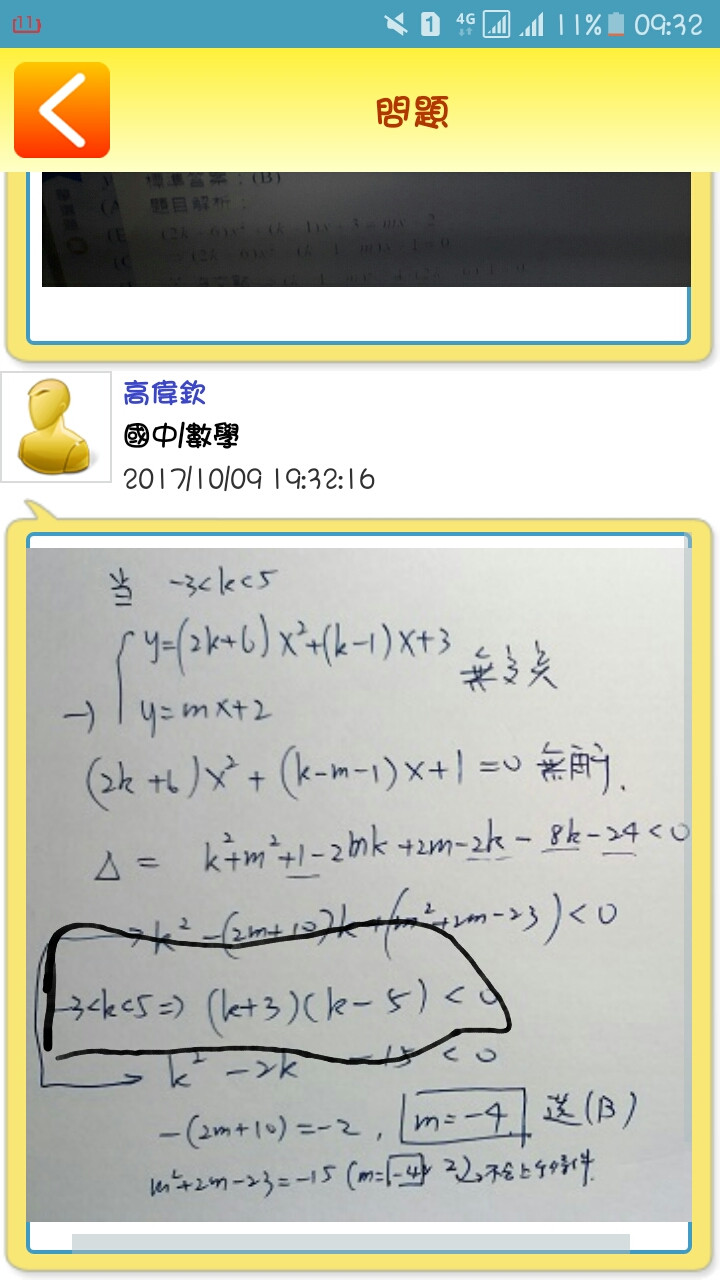 11
1 4G 11% 09:32
問題
標準答案：(B)
題目解析：
高偉欽
國中/數學
2017/10/09 19:32:16
当 -3<k<5
y=(2k+6)x²+(k-1)x+3
無交点
→ y=mx+2
(2k+6)x²+(k-m-1)x+1=0 無解.
△= k²+m²+1-2mk+2m-2k-8k-24<0
→k²-(2m+10)k+(m²+2m-23)<0
-3<k<5⇒(k+3)(k-5)<0
k²-2k-15<0
-(2m+10)=-2, m=-4 选(B)
m²+2m-23=-15 (m=-4, 2)